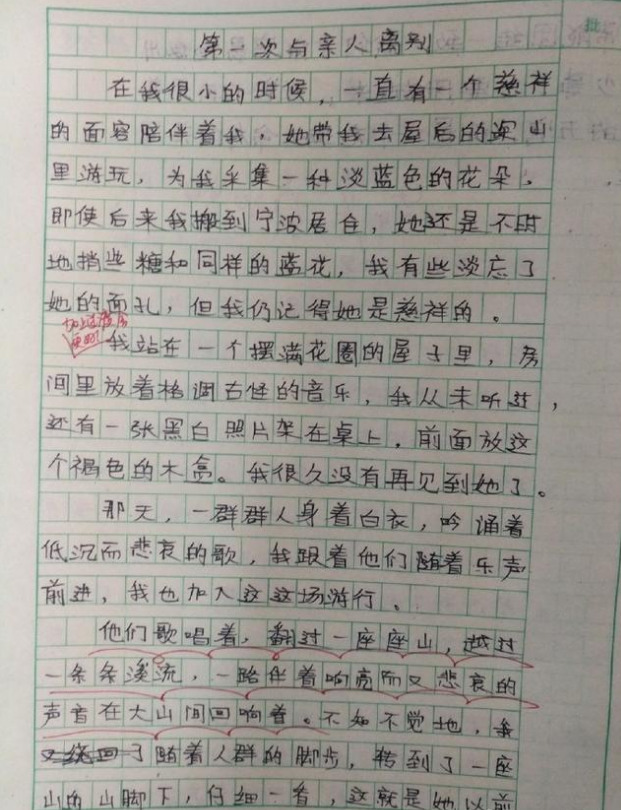 第一次与亲人离别
在我很小的时候，一直有一个慈祥
的面容陪伴着我，她带我去屋后的深山
里游玩，为我采集一种淡蓝色的花朵，
即使后来我搬到宁波居住，她还是不时
地捎些糖和同样的蓝花，我有些淡忘了
她的面孔，但我仍记得她是慈祥的。
我站在一个摆满花圈的屋子里，房
间里放着格调古怪的音乐，我从未听过，
还有一张黑白照片架在桌上，前面放这
个褐色的木盒。我很久没有再见到她了。
那天，一群群人身着白衣，吟诵着
低沉而悲哀的歌，我跟着他们随着乐声
前进，我也加入这这场游行。
他们歌唱着，翻过一座座山，越过
一条条溪流，一路伴着响亮而又悲哀的
声音在大山间回响着。不知不觉地，我
了随着人群的脚步，转到了一座
山的山脚下，仔细一看，这就是她以前